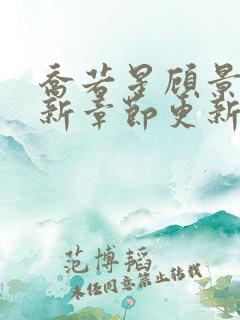 乔若星顾景
新章节更新
范博韬
未经同意禁止转载